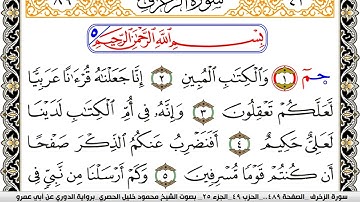 سورة الزخرف
بِسْمِ اللَّهِ الرَّحْمَٰنِ الرَّحِيمِ
حمٓ ١ وَالْكِتَابِ الْمُبِينِ ٢ إِنَّا جَعَلْنَاهُ قُرْءَانًا عَرَبِيًّا
لَعَلَّكُمْ تَعْقِلُونَ ٣ وَإِنَّهُ فِي أُمِّ الْكِتَابِ لَدَيْنَا
لَعَلِيٌّ حَكِيمٌ ٤ أَفَنَضْرِبُ عَنكُمُ الذِّكْرَ صَفْحًا
أَن كُنتُمْ قَوْمًا مُّسْرِفِينَ ٥ وَكَمْ أَرْسَلْنَا مِن نَّبِيٍّ فِي
سورة الزخرف _ الصفحة ٤٨٩ _ الحزب ٤٩ _ الجزء ٢٥ _ بصوت الشيخ محمود خليل الحصري _ برواية الدوري عن أبي عمرو